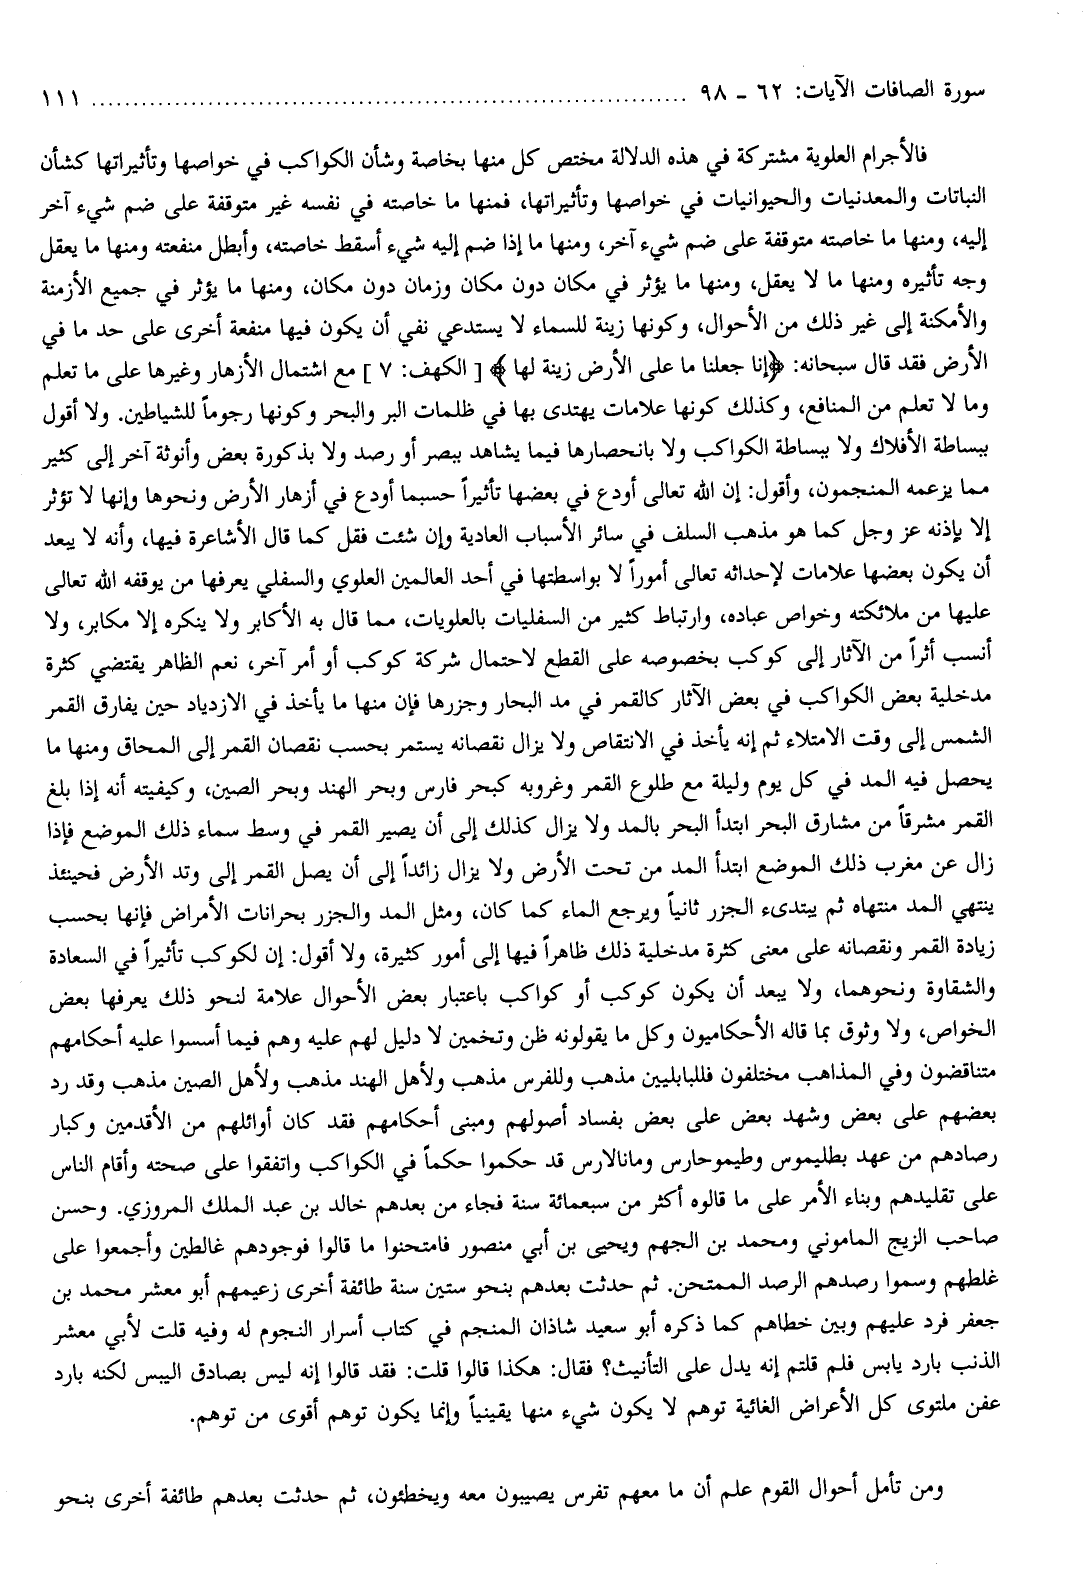 سورة الصافات الآيات: ٦٢ ـ ٩٨ ........................................................................ ١١١
فالأجرام العلوية مشتركة في هذه الدلالة مختص كل منها بخاصة وشأن الكواكب في خواصها وتأثيراتها كشأن
النباتات والمعدنيات والحيوانيات في خواصها وتأثيراتها، فمنها ما خاصته في نفسه غير متوقفة على ضم شيء آخر
إليه، ومنها ما خاصته متوقفة على ضم شيء آخر، ومنها ما إذا ضم إليه شيء أسقط خاصته، وأبطل منفعته ومنها ما يعقل
وجه تأثيره ومنها ما لا يعقل، ومنها ما يؤثر في مكان دون مكان وزمان دون مكان، ومنها ما يؤثر في جميع الأزمنة
والأمكنة إلى غير ذلك من الأحوال، وكونها زينة للسماء لا يستدعي نفي أن يكون فيها منفعة أخرى على حد ما في
الأرض فقد قال سبحانه: ﴿إنا جعلنا ما على الأرض زينة لها ﴾ [ الكهف: ٧ ] مع اشتمال الأزهار وغيرها على ما تعلم
وما لا تعلم من المنافع، وكذلك كونها علامات يهتدى بها في ظلمات البر والبحر وكونها رجوماً للشياطين. ولا أقول
ببساطة الأفلاك ولا ببساطة الكواكب ولا بانحصارها فيما يشاهد ببصر أو رصد ولا بذكورة بعض وأنوثة آخر إلى كثير
مما يزعمه المنجمون، وأقول: إن الله تعالى أودع في بعضها تأثيراً حسبما أودع في أزهار الأرض ونحوها وإنها لا تؤثر
إلا بإذنه عز وجل كما هو مذهب السلف في سائر الأسباب العادية وإن شئت فقل كما قال الأشاعرة فيها، وأنه لا يبعد
أن يكون بعضها علامات لإحداثه تعالى أموراً لا بواسطتها في أحد العالمين العلوي والسفلي يعرفها من يوقفه الله تعالى
عليها من ملائكته وخواص عباده، وارتباط كثير من السفليات بالعلويات، مما قال به الأكابر ولا ينكره إلا مكابر، ولا
أنسب أثراً من الآثار إلى كوكب بخصوصه على القطع لاحتمال شركة كوكب أو أمر آخر، نعم الظاهر يقتضي كثرة
مدخلية بعض الكواكب في بعض الآثار كالقمر في مد البحار وجزرها فإن منها ما يأخذ في الازدياد حين يفارق القمر
الشمس إلى وقت الامتلاء ثم إنه يأخذ في الانتقاص ولا يزال نقصانه يستمر بحسب نقصان القمر إلى المحاق ومنها ما
يحصل فيه المد في كل يوم وليلة مع طلوع القمر وغروبه كبحر فارس وبحر الهند وبحر الصين، وكيفيته أنه إذا بلغ
القمر مشرقاً من مشارق البحر ابتدأ البحر بالمد ولا يزال كذلك إلى أن يصير القمر في وسط سماء ذلك الموضع فإذا
زال عن مغرب ذلك الموضع ابتدأ المد من تحت الأرض ولا يزال زائداً إلى أن يصل القمر إلى وتد الأرض فحينئذ
ينتهي المد منتهاه ثم يبتدىء الجزر ثانياً ويرجع الماء كما كان، ومثل المد والجزر بحرانات الأمراض فإنها بحسب
زيادة القمر ونقصانه على معنى كثرة مدخلية ذلك ظاهراً فيها إلى أمور كثيرة، ولا أقول: إن لكوكب تأثيراً في السعادة
والشقاوة ونحوهما، ولا يبعد أن يكون كوكب أو كواكب باعتبار بعض الأحوال علامة لنحو ذلك يعرفها بعض
الخواص، ولا وثوق بما قاله الأحكاميون وكل ما يقولونه ظن وتخمين لا دليل لهم عليه وهم فيما أسسوا عليه أحكامهم
متناقضون وفي المذاهب مختلفون فللبابليين مذهب وللفرس مذهب ولأهل الهند مذهب ولأهل الصين مذهب وقد رد
بعضهم على بعض وشهد بعض على بعض بفساد أصولهم ومبنى أحكامهم فقد كان أوائلهم من الأقدمين وكبار
رصادهم من عهد بطليموس وطيموحارس ومانالارس قد حكموا حكماً في الكواكب واتفقوا على صحته وأقام الناس
على تقليدهم وبناء الأمر على ما قالوه أكثر من سبعمائة سنة فجاء من بعدهم خالد بن عبد الملك المروزي. وحسن
صاحب الزيج الماموني ومحمد بن الجهم ويحيى بن أبي منصور فامتحنوا ما قالوا فوجودهم غالطين وأجمعوا على
غلطهم وسموا رصدهم الرصد الممتحن. ثم حدثت بعدهم بنحو ستين سنة طائفة أخرى زعيمهم أبو معشر محمد بن
جعفر فرد عليهم وبين خطاهم كما ذكره أبو سعيد شاذان المنجم في كتاب أسرار النجوم له وفيه قلت لأبي معشر
الذنب بارد يابس فلم قلتم إنه يدل على التأنيث؟ فقال: هكذا قالوا قلت: فقد قالوا إنه ليس بصادق اليبس لكنه بارد
عفن ملتوى كل الأعراض الغائية توهم لا يكون شيء منها يقينياً وإنما يكون توهم أقوى من توهم.
ومن تأمل أحوال القوم علم أن ما معهم تفرس يصيبون معه ويخطئون، ثم حدثت بعدهم طائفة أخرى بنحو